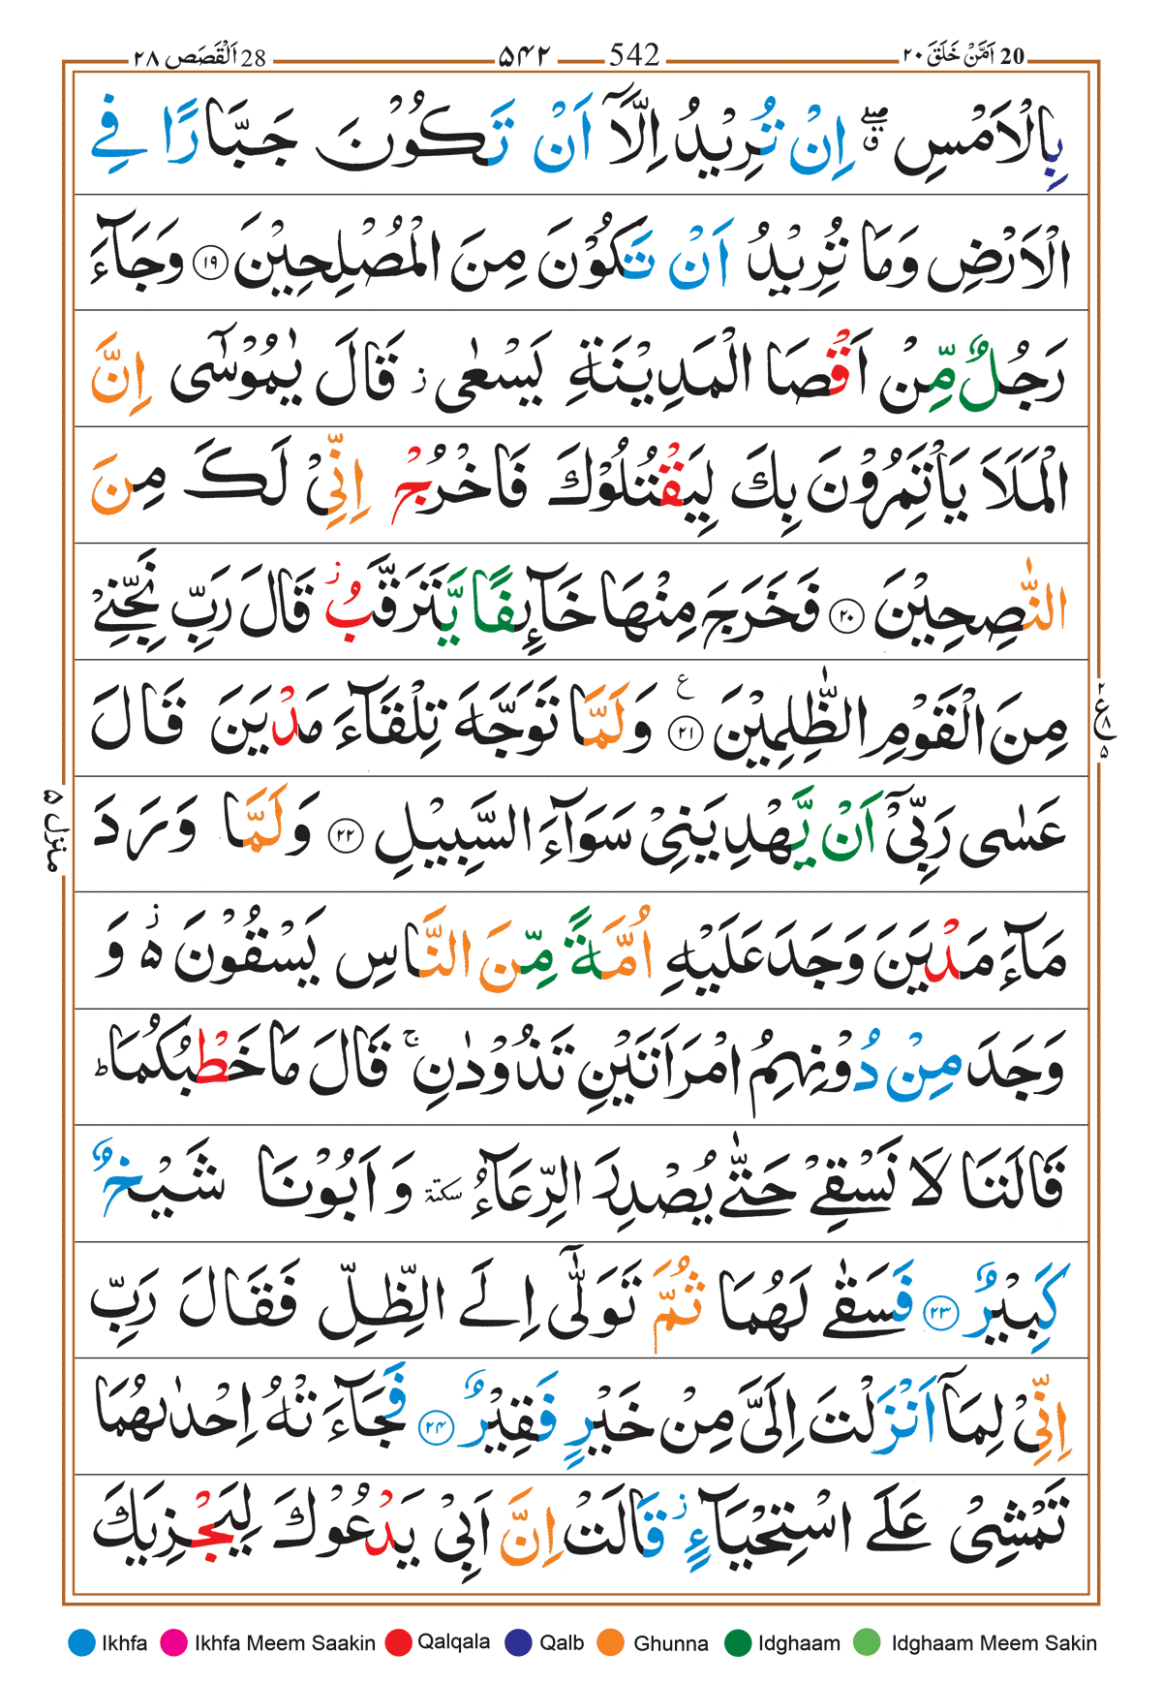 اَلْقَصَص ٢٨ 28 ۵۴۲ 542 اَمَّنْ خَلَقَ ٢٠ 20
بِالْاَمْسِ ۖۗ اِنْ تُرِيْدُ اِلَّاۤ اَنْ تَكُوْنَ جَبَّارًا فِي
الْاَرْضِ وَمَا تُرِيْدُ اَنْ تَكُوْنَ مِنَ الْمُصْلِحِيْنَ ١٩ وَجَآءَ
رَجُلٌ مِّنْ اَقْصَا الْمَدِيْنَةِ يَسْعٰى ز قَالَ يٰمُوْسٰٓى اِنَّ
الْمَلَاَ يَاْتَمِرُوْنَ بِكَ لِيَقْتُلُوْكَ فَاخْرُجْ اِنِّيْ لَكَ مِنَ
النّٰصِحِيْنَ ٢٠ فَخَرَجَ مِنْهَا خَآىِٕفًا يَّتَرَقَّبُ ز قَالَ رَبِّ نَجِّنِيْ
مِنَ الْقَوْمِ الظّٰلِمِيْنَ ع ٢١ وَلَمَّا تَوَجَّهَ تِلْقَآءَ مَدْيَنَ قَالَ
ع ٢ ٨ ٥
عَسٰى رَبِّيْۤ اَنْ يَّهْدِيَنِيْ سَوَآءَ السَّبِيْلِ ٢٢ وَلَمَّا وَرَدَ
منزل ۵
مَآءَ مَدْيَنَ وَجَدَ عَلَيْهِ اُمَّةً مِّنَ النَّاسِ يَسْقُوْنَ ە ز وَ
وَجَدَ مِنْ دُوْنِهِمُ امْرَاَتَيْنِ تَذُوْدٰنِ ۚ قَالَ مَا خَطْبُكُمَا ط
قَالَتَا لَا نَسْقِيْ حَتّٰى يُصْدِرَ الرِّعَآءُ سكتة وَاَبُوْنَا شَيْخٌ
كَبِيْرٌ ٢٣ فَسَقٰى لَهُمَا ثُمَّ تَوَلّٰٓى اِلَى الظِّلِّ فَقَالَ رَبِّ
اِنِّيْ لِمَاۤ اَنْزَلْتَ اِلَيَّ مِنْ خَيْرٍ فَقِيْرٌ ٢٤ فَجَآءَتْهُ اِحْدٰىهُمَا
تَمْشِيْ عَلَى اسْتِحْيَآءٍ ز قَالَتْ اِنَّ اَبِيْ يَدْعُوْكَ لِيَجْزِيَكَ
Ikhfa Ikhfa Meem Saakin Qalqala Qalb Ghunna Idghaam Idghaam Meem Sakin